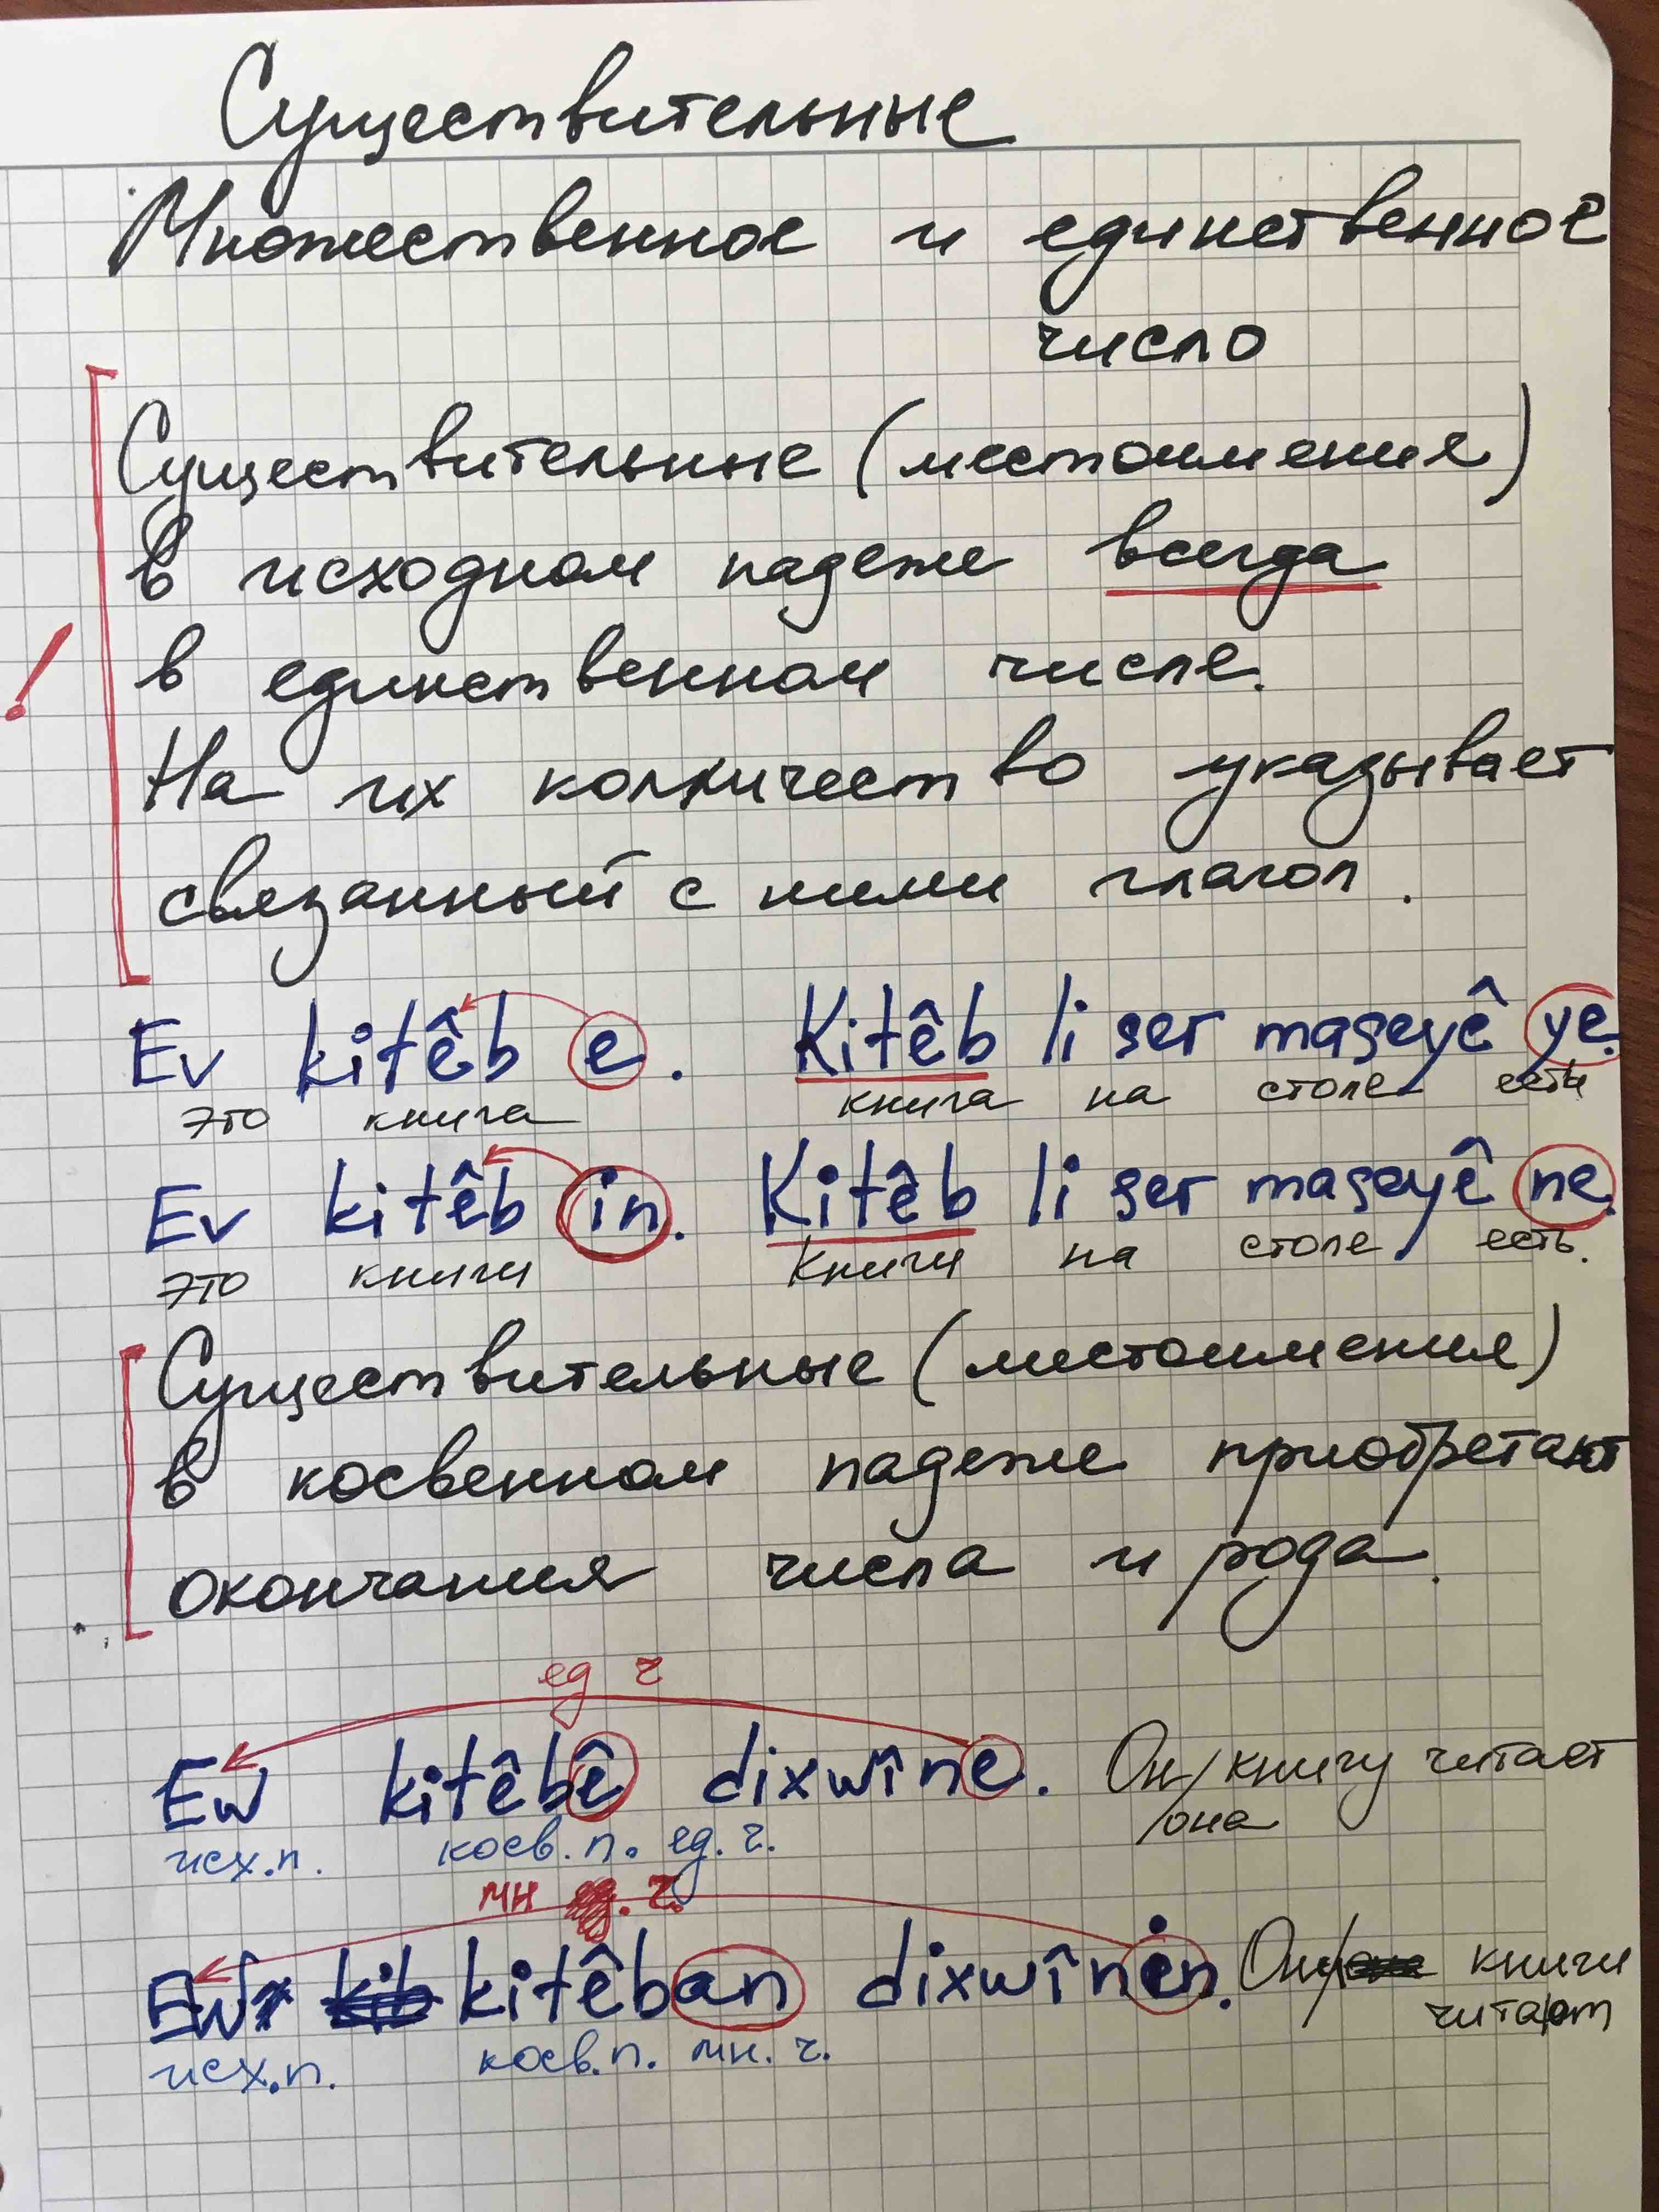 Существительные
Множественное и единственное
число
Существительные (местоимения)
в исходном падеже всегда
в единственном числе.
! На их количество указывает
связанный с ними глагол.
Ev kitêb e. Kitêb li ser maseyê ye.
это книга книга на столе есть
Ev kitêb in. Kitêb li ser maseyê ne.
это книги Книги на столе есть.
Существительные (местоимения)
в косвенном падеже приобретают
окончания числа и рода.
ед ч
Ew kitêbê dixwîne. Он/книгу читает
/она
исх.п. косв. п. ед. ч.
мн ч.
Ew kitêban dixwînin. Они книги
читают
исх.п. косв.п. мн. ч.